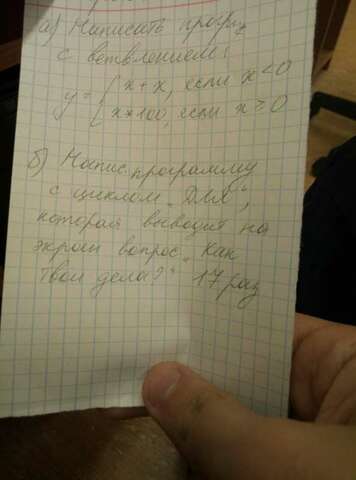 а) Написать прогр
с ветвлением:
y = { x + x, если x < 0
x * 100, если x ≥ 0
б) Напис. программу
с циклом „ДЛЯ",
которая выводит на
экран вопрос „Как
твои дела?" 17 раз